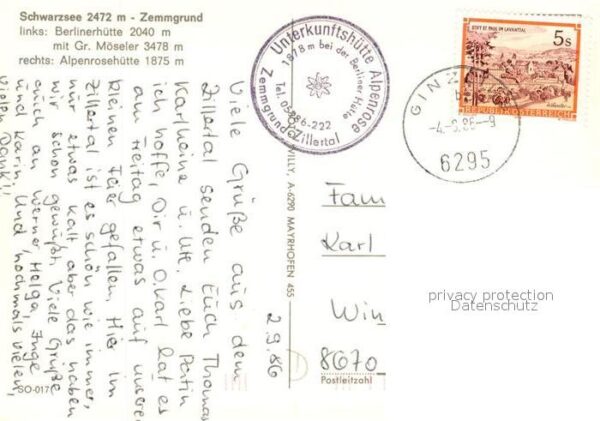 Schwarzsee 2472 m - Zemmgrund
links: Berlinerhütte 2040 m
mit Gr. Möseler 3478 m
rechts: Alpenrosehütte 1875 m
Unterkunftshütte Alpenrose
1878 m bei der Berliner Hütte
Tel. 05286-222
Zemmgrund/Zillertal
STIFT ST. PAUL IM LAVANTTAL
5s
REPUBLIK ÖSTERREICH
GINZ
6295
2.9.86
Viele Grüße aus dem
Zillertal senden Euch Thomas,
Karlheinz u. Ute. Liebe Patin
ich hoffe, Dir u. O. Karl hat es
am Freitag etwas auf unserer
kleinen Feier gefallen. Hier im
Zillertal ist es schön wie immer,
nur etwas kalt aber das haben
wir schon gewußt. Viele Grüße
auch an Werner, Helga, Inge
und Karin. Und nochmals vielen,
vielen Dank!!
WILLY, A-6290 MAYRHOFEN 455
Fam
Karl
Win
8670
Postleitzahl
SO-017
privacy protection
Datenschutz